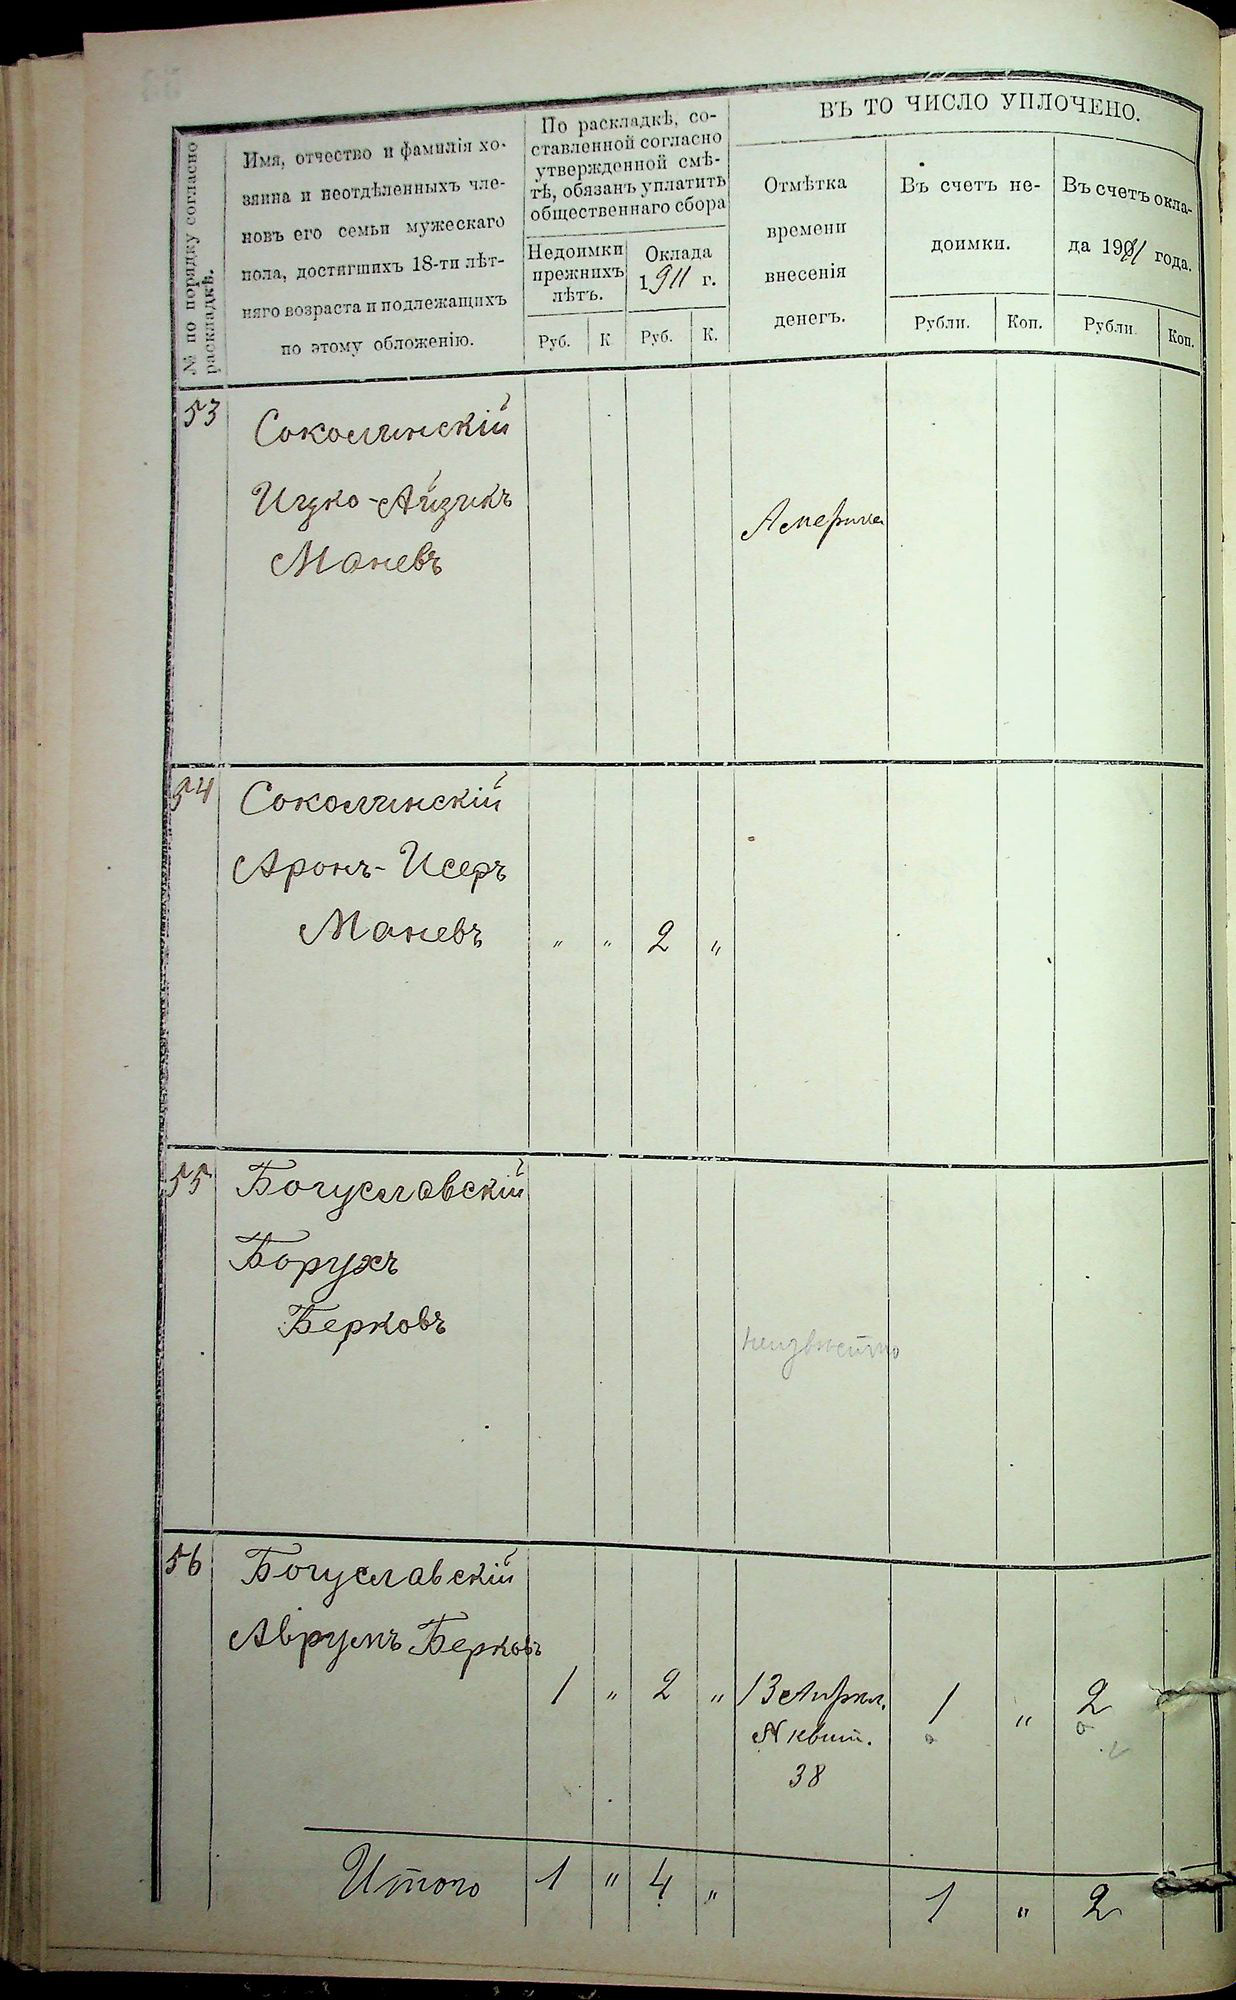 № по порядку согласно
раскладкѣ.
Имя, отчество и фамилія хо-
зяина и неотдѣленныхъ чле-
новъ его семьи мужескаго
пола, достигшихъ 18-ти лѣт-
няго возраста и подлежащихъ
по этому обложенію.
По раскладкѣ, со-
ставленной согласно
утвержденной смѣ-
тѣ, обязанъ уплатить
общественнаго сбора
Недоимки
прежнихъ
лѣтъ.
Оклада
1911 г.
Руб. К Руб. К.
ВЪ ТО ЧИСЛО УПЛОЧЕНО.
Отмѣтка
времени
внесенія
денегъ.
Въ счетъ не-
доимки.
Въ счетъ окла-
да 1911 года.
Рубли. Коп. Рубли Коп.
53 Соколинскій
Ицко-Айзикъ
Маневъ
Америка
54 Соколинскій
Аронъ-Исеръ
Маневъ " " 2 "
55 Богуславскій
Борухъ
Берковъ
неизвѣстно
56 Богуславскій
Аврумъ Берковъ
1 " 2 " 13 Апрѣл. 1 " 2
N квит.
38
Итого 1 " 4 " 1 " 2